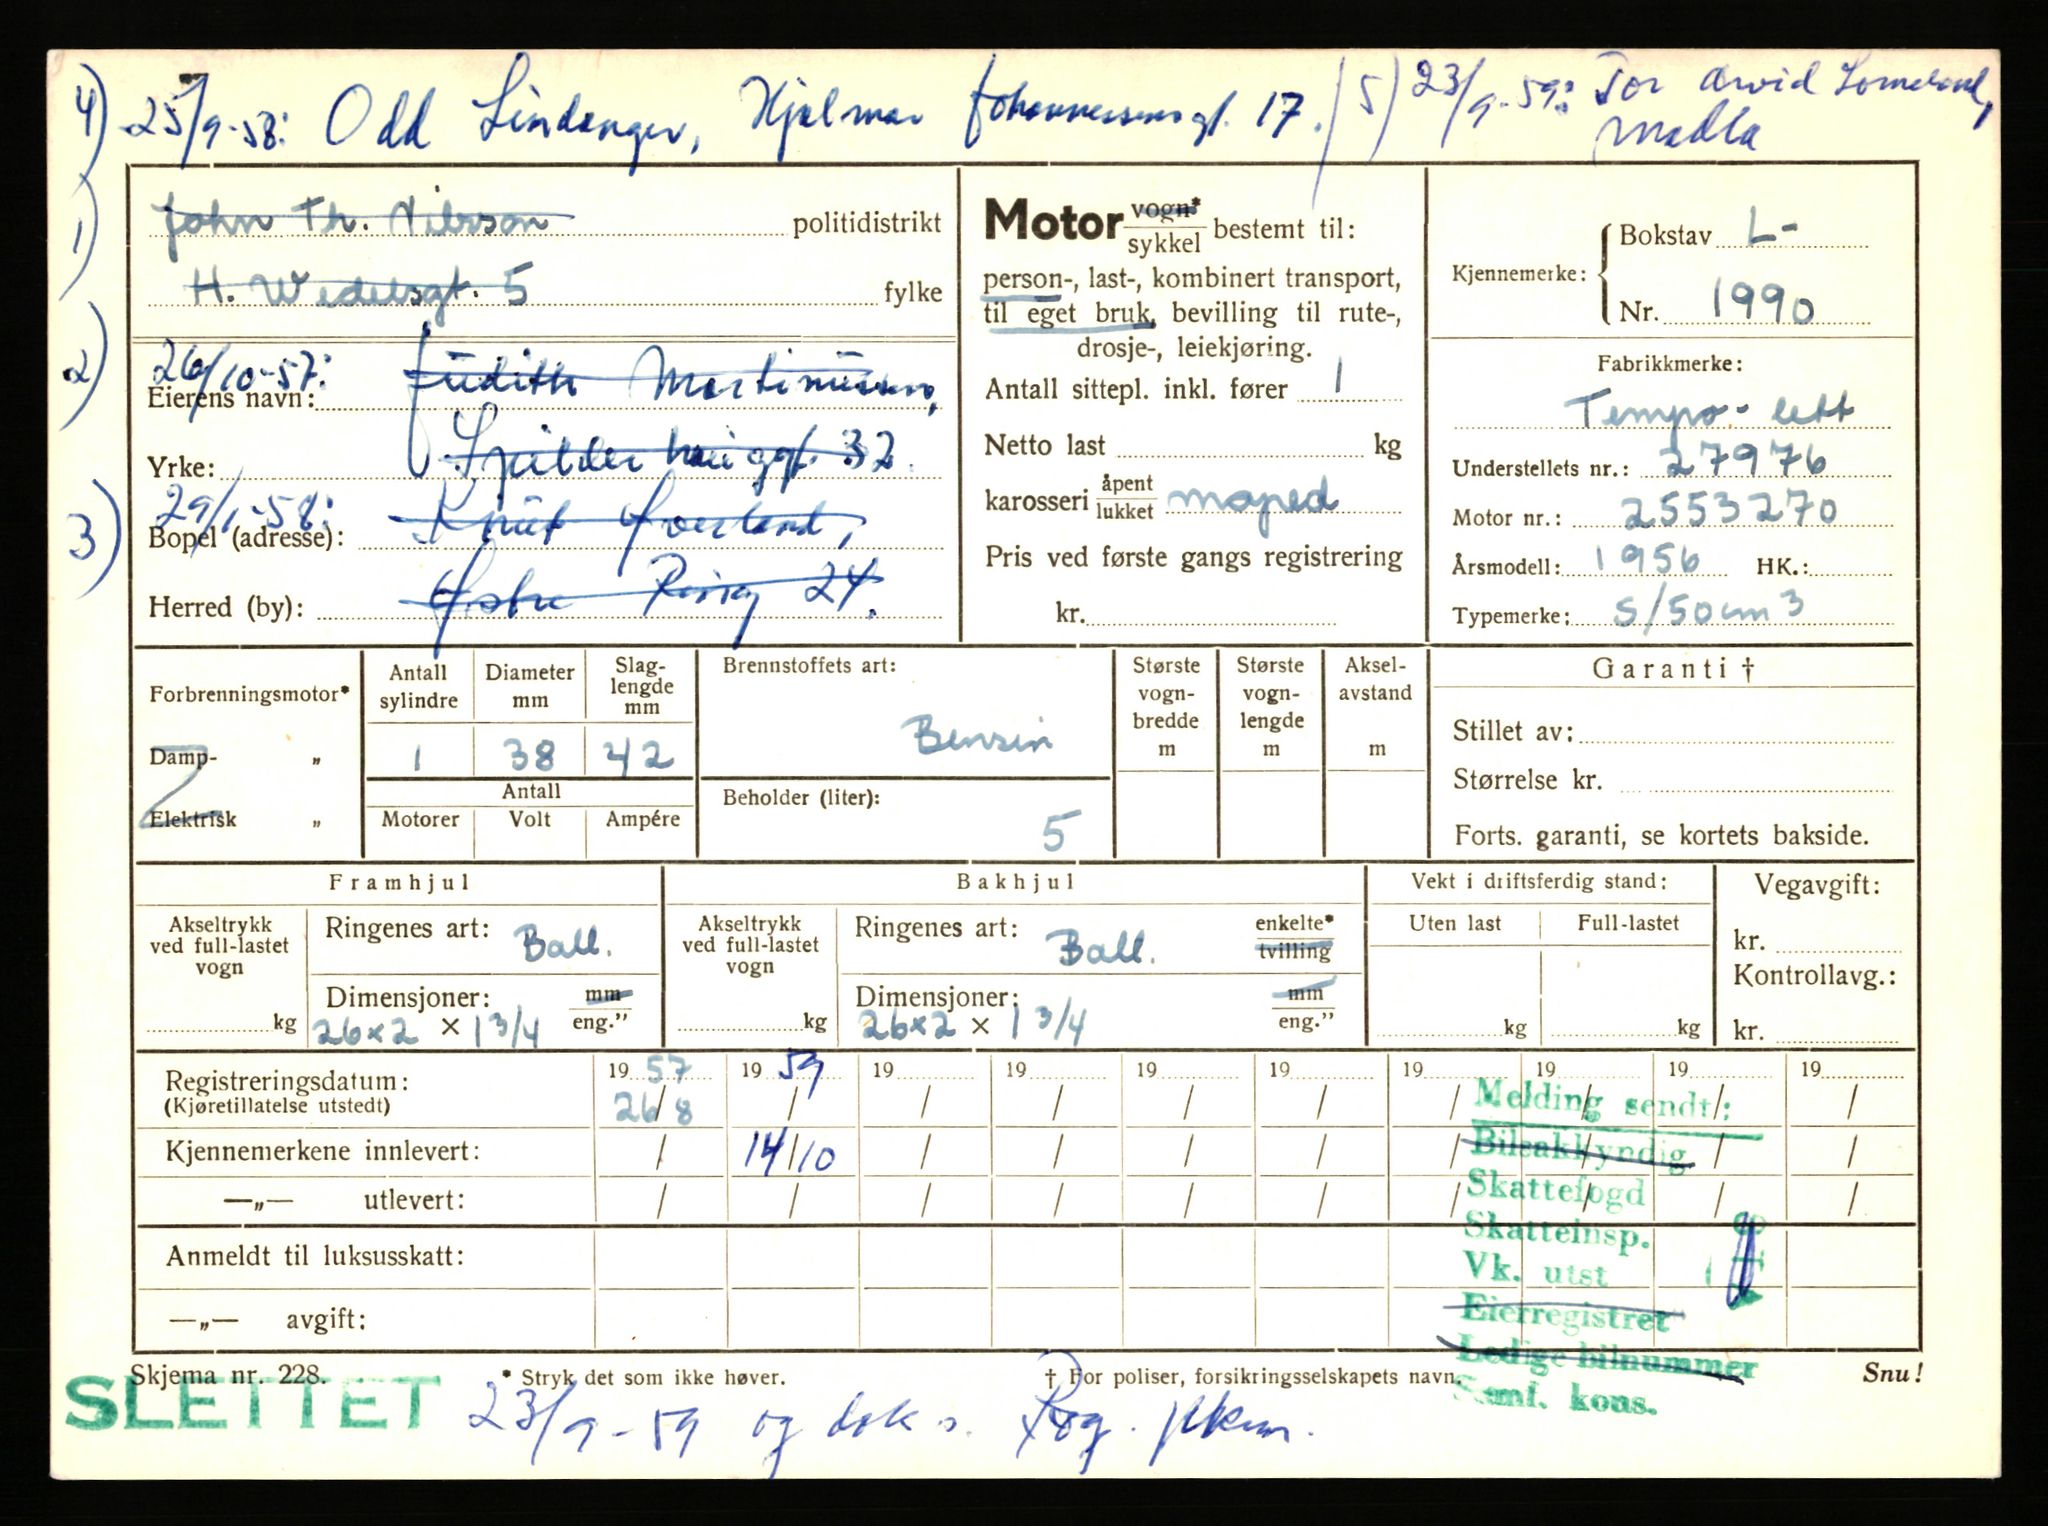 4) 25/9-58: Odd Lindanger, Hjalmar Johannessensgt. 17. / 5) 23/9-59: Tor Arvid
Madla
1) John Th. Nilsson politidistrikt
H. Wedelsgt. 5 fylke
2) 26/10-57: Judith Martinussen,
Eierens navn:
Yrke: 32.
3) 29/1-58: Knut
Bopel (adresse):
Østre Ring 24.
Herred (by):
Motor vogn* / sykkel bestemt til:
person-, last-, kombinert transport,
til eget bruk, bevilling til rute-,
drosje-, leiekjøring.
Antall sittepl. inkl. fører 1
Netto last kg
karosseri åpent / lukket moped
Pris ved første gangs registrering
kr.
Kjennemerke: Bokstav L-
Nr. 1990
Fabrikkmerke:
Tempo-lett
Understellets nr.: 27976
Motor nr.: 2553270
Årsmodell: 1956 HK.:
Typemerke: S/50 cm3
Forbrenningsmotor*
Damp- "
Elektrisk "
Antall sylindre Diameter mm Slag-lengde mm
1 38 42
Antall
Motorer Volt Ampére
Brennstoffets art:
Bensin
Beholder (liter):
5
Største vogn-bredde m
Største vogn-lengde m
Aksel-avstand m
Garanti †
Stillet av:
Størrelse kr.
Forts. garanti, se kortets bakside.
Framhjul
Akseltrykk ved full-lastet vogn
kg
Ringenes art: Ball.
Dimensjoner: mm / eng."
26x2 × 1 3/4
Bakhjul
Akseltrykk ved full-lastet vogn
kg
Ringenes art: Ball. enkelte* / tvilling
Dimensjoner: mm / eng."
26x2 × 1 3/4
Vekt i driftsferdig stand:
Uten last Full-lastet
kg kg
Vegavgift:
kr.
Kontrollavg.:
kr.
Registreringsdatum: 1957 1959 19 19 19 19 19 19 19 19
(Kjøretillatelse utstedt) 26/8 / / / / / / / / /
Kjennemerkene innlevert: / 14/10 / / / / / / / /
—„— utlevert: / / / / / / / / / /
Anmeldt til luksusskatt:
—„— avgift:
Melding sendt:
Bilsakkyndig
Skattefogd
Skatteinsp.
Vk. utst
Eierregistret
Ledige bilnummer
Samf. kons.
Skjema nr. 228.
* Stryk det som ikke høver.
† For poliser, forsikringsselskapets navn.
Snu!
SLETTET 23/9-59 og dek s. Rog.